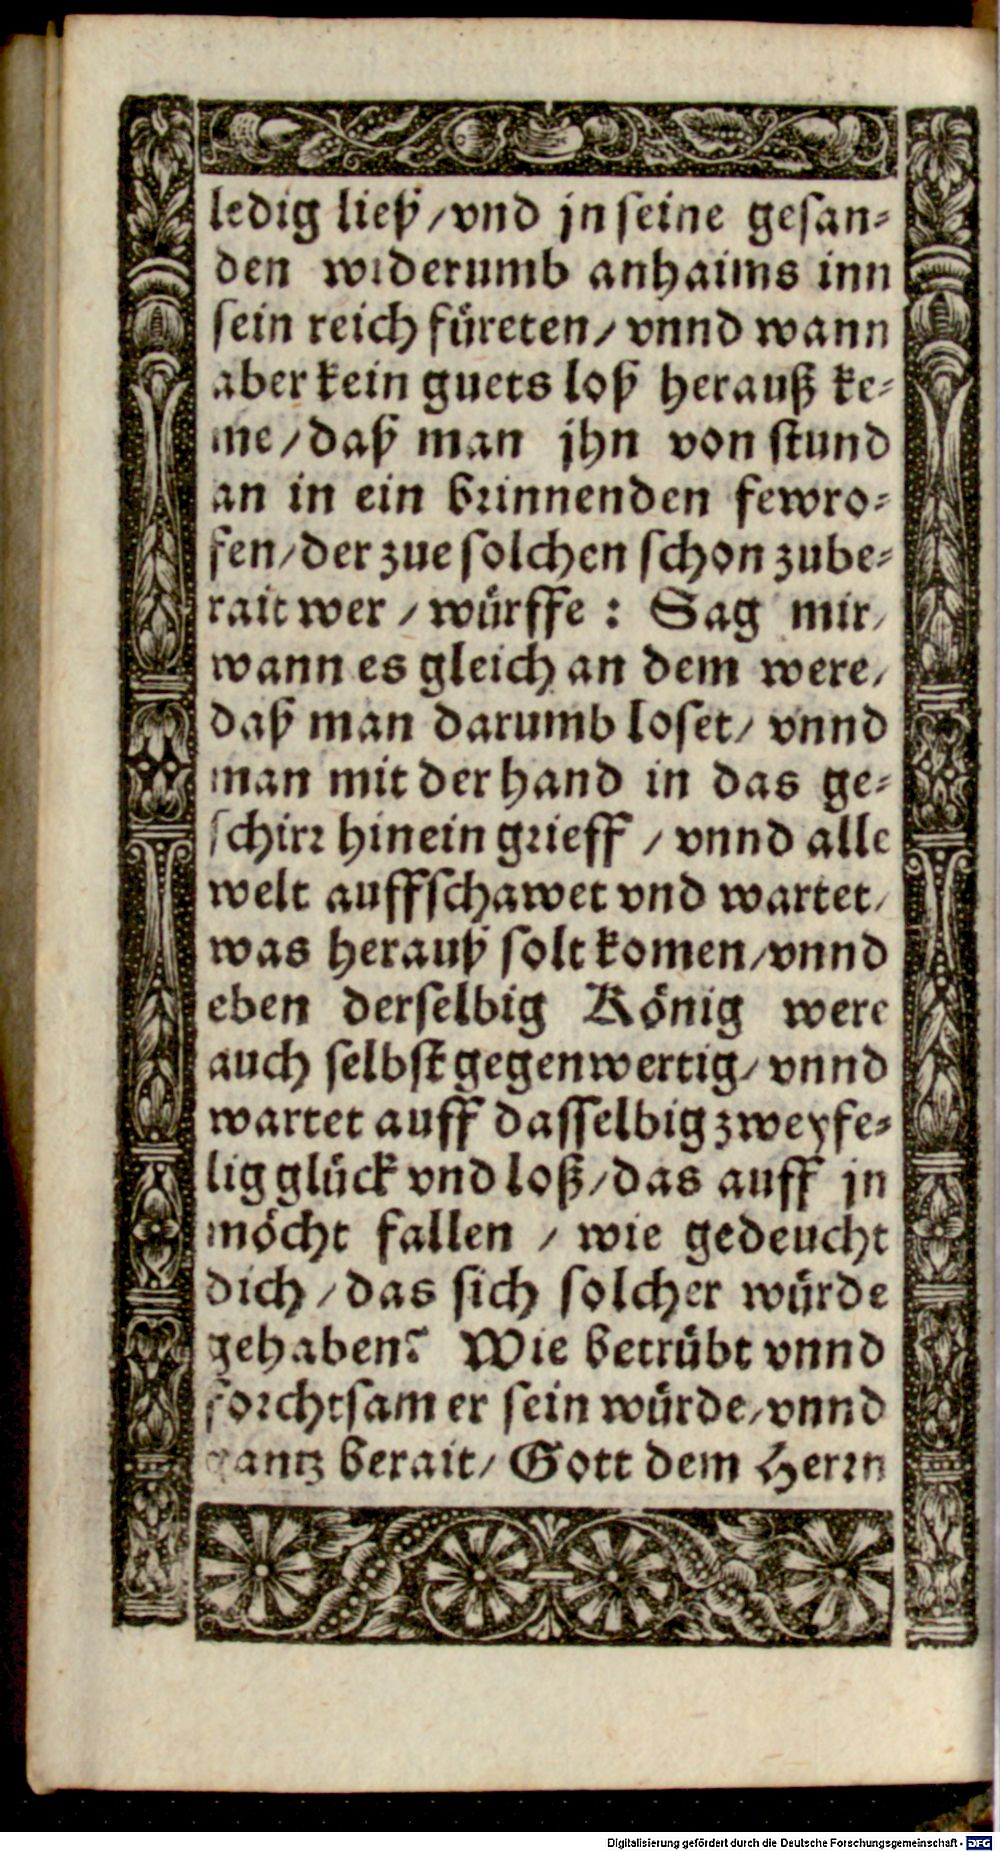 ledig ließ/vnd jn seine gesan-
den widerumb anhaims inn
sein reich füreten/vnnd wann
aber kein guets loß herauß ke-
me/daß man jhn von stund
an in ein brinnenden fewro-
fen/der zue solchen schon zube-
rait wer/würffe: Sag mir/
wann es gleich an dem were/
daß man darumb loset/vnnd
man mit der hand in das ge-
schirr hinein grieff/vnnd alle
welt auffschawet vnd wartet/
was herauß solt komen/vnnd
eben derselbig König were
auch selbst gegenwertig/vnnd
wartet auff dasselbig zweyfe-
lig glück vnd loß/das auff jn
möcht fallen/wie gedeucht
dich/das sich solcher würde
gehaben? Wie betrübt vnnd
forchtsam er sein würde/vnnd
gantz berait/Gott dem Herrn
Digitalisierung gefördert durch die Deutsche Forschungsgemeinschaft - DFG